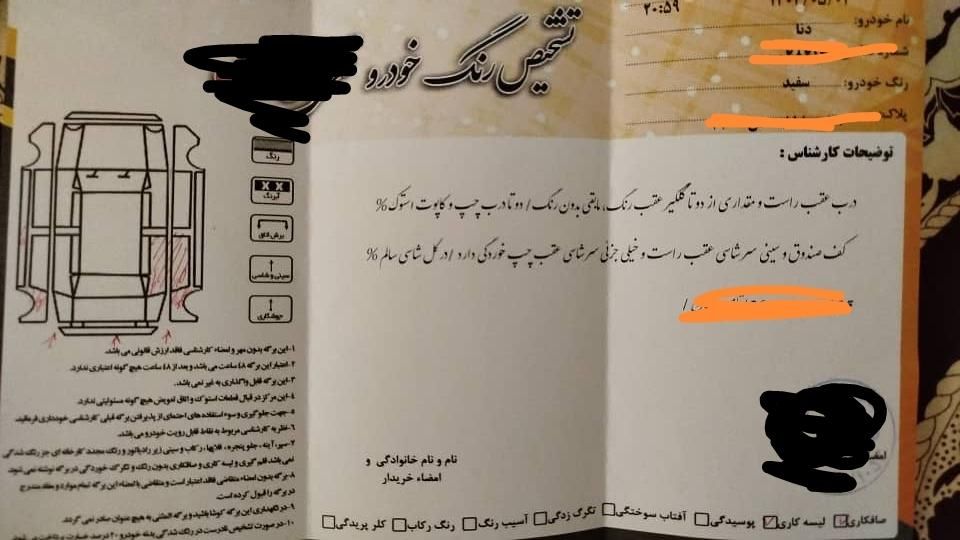 ۲۰:۵۹
نام خودرو: دنا
رنگ خودرو: سفید
پلاک
تشخیص رنگ خودرو
توضیحات کارشناس :
درب عقب راست و مقداری از دو تا گلگیر عقب رنگ، مابقی بدون رنگ / دو تا درب چپ و کاپوت استوک %
کف صندوق و سینی سرشاسی عقب راست و خیلی جزئی سرشاسی عقب چپ خوردگی دارد / در کل شاسی سالم %
رنگ
آبرنگ
برش اتاق
سینی و شاسی
جوشکاری
۱-این برگه بدون مهر و امضاء کارشناسی فاقد ارزش قانونی می باشد.
۲-اعتبار این برگه ۴۸ ساعت می باشد و بعد از ۴۸ ساعت هیچ گونه اعتباری ندارد.
۳-این برگه قابل واگذاری به غیر نمی باشد.
۴-این مرکز در قبال قطعات استوک و اتاق تعویض هیچ گونه مسئولیتی ندارد.
۵-جهت جلوگیری و سوء استفاده های احتمالی از پذیرفتن برگه قبلی کارشناسی خودداری فرمائید.
۶-نظریه کارشناسی مربوط به نقاط قابل رویت خودرو می باشد.
۷-سپر، آینه، جلو پنجره، قلابها، رکاب و سینی زیر رادیاتور و رنگ مجدد کارخانه ای جز رنگ شدگی
نمی باشد قلم گیری و لیسه کاری و صافکاری بدون رنگ و تگرگ خوردگی در برگه نوشته نمی شود.
۸-برگه بدون امضاء متقاضی فاقد اعتبار است و متقاضی با امضاء این برگه تمام موارد و مفاد مندرج
در برگه را قبول کرده است.
۹-در نگهداری این برگه کوشا باشید و برگه المثنی به هیچ عنوان صادر نمی گردد.
نام و نام خانوادگی و
امضاء خریدار
صافکاری لیسه کاری پوسیدگی آفتاب سوختگی تگرگ زدگی آسیب رنگ رنگ رکاب کلر پریدگی